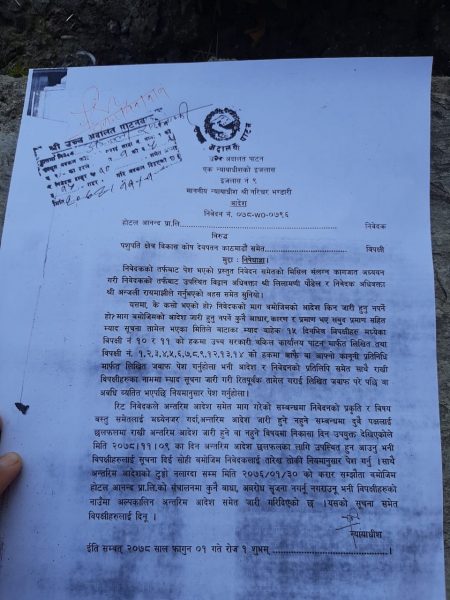 श्री उच्च अदालत पाटनमा
उच्च अदालत पाटन
एक न्यायाधीशको इजलास
इजलास नं ९
माननीय न्यायाधीश श्री
आदेश
निवेदन नं. ०७८-WO-०७९६
होटल आनन्द प्रा.लि. निवेदक
विरुद्ध
पशुपति क्षेत्र विकास कोष देवपतन काठमाडौं समेत विपक्षी
मुद्दाः निषेधाज्ञा।
निवेदकको तर्फबाट पेश भएको प्रस्तुत निवेदन समेतको मिसिल संलग्न कागजात अध्ययन
गरी निवेदकको तर्फबाट उपस्थित विद्वान अधिवक्ता श्री लिलामणी पौडेल र निवेदक अधिवक्ता
श्री अन्जली रायमाझीले गर्नुभएको वहस समेत सुनियो।
यसमा, के कसो भएको हो? माग बमोजिमको आदेश किन जारी हुनु नपर्ने
हो? माग बमोजिमको आदेश जारी हुनु नपर्ने कुनै आधार, कारण र प्रमाण भए सबुद प्रमाण सहित
म्याद सूचना तामेल भएका मितिले बाटाका म्याद बाहेक १५ दिनभित्र विपक्षीहरु मध्येका
विपक्षी नं १० र ११ को हकमा उच्च सरकारी वकिल कार्यालय पाटन मार्फत लिखित तथा
विपक्षी नं. १,२,३,४,५,६,७,८,९,१२,१३,१४ को हकमा आफै वा आफ्नो कानूनी प्रतिनिधि
मार्फत लिखित जवाफ पेश गर्नुहोला भनी आदेश र निवेदनको प्रतिलिपि समेत साथै राखी
विपक्षीहरुका नाममा म्याद सूचना जारी गरी रितपूर्वक तामेल गराई लिखित जवाफ परे पछि वा
अवधि व्यतित भएपछि नियमानुसार पेश गर्नुहोला।
रिट निवेदकले अन्तरिम आदेश समेत माग गरेको सम्बन्धमा निवेदनको प्रकृति र विषय
वस्तु समेतलाई मध्येनजर गर्दा, अन्तरिम आदेश जारी हुने नहुने सम्बन्धमा दुवै पक्षलाई
छलफलमा राखी अन्तरिम आदेश जारी हुने वा नहुने विषयमा निकास दिन उपयुक्त देखिएकोले
मिति २०७८।११।०९ का दिन अन्तरिम आदेश छलफलका लागि उपस्थित हुन आउनु भनी
विपक्षीहरुलाई सूचना दिई सोही बमोजिम निवेदकलाई तारिख तोकी नियमानुसार पेश गर्नु। साथै
अन्तरिम आदेशको टुङ्गो नलाग्दा सम्म मिति २०७६/०१/३० को करार सम्झौता बमोजिम
होटल आनन्द प्रा.लि.को संचालनमा कुनै वाधा, अवरोध सृजना नगर्नु नगराउनु भनी विपक्षीहरुको
नाउँमा अल्पकालिन अन्तरिम आदेश समेत जारी गरिदिएको छ। यसको सूचना समेत
विपक्षीहरुलाई दिनू।
न्यायाधीश
ईति सम्बत् २०७८ साल फागुन ०१ गते रोज १ शुभम्